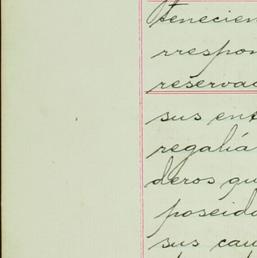 tenecien
rrespon
reservad
sus ent
regaliá
deros qu
poseido
sus cau